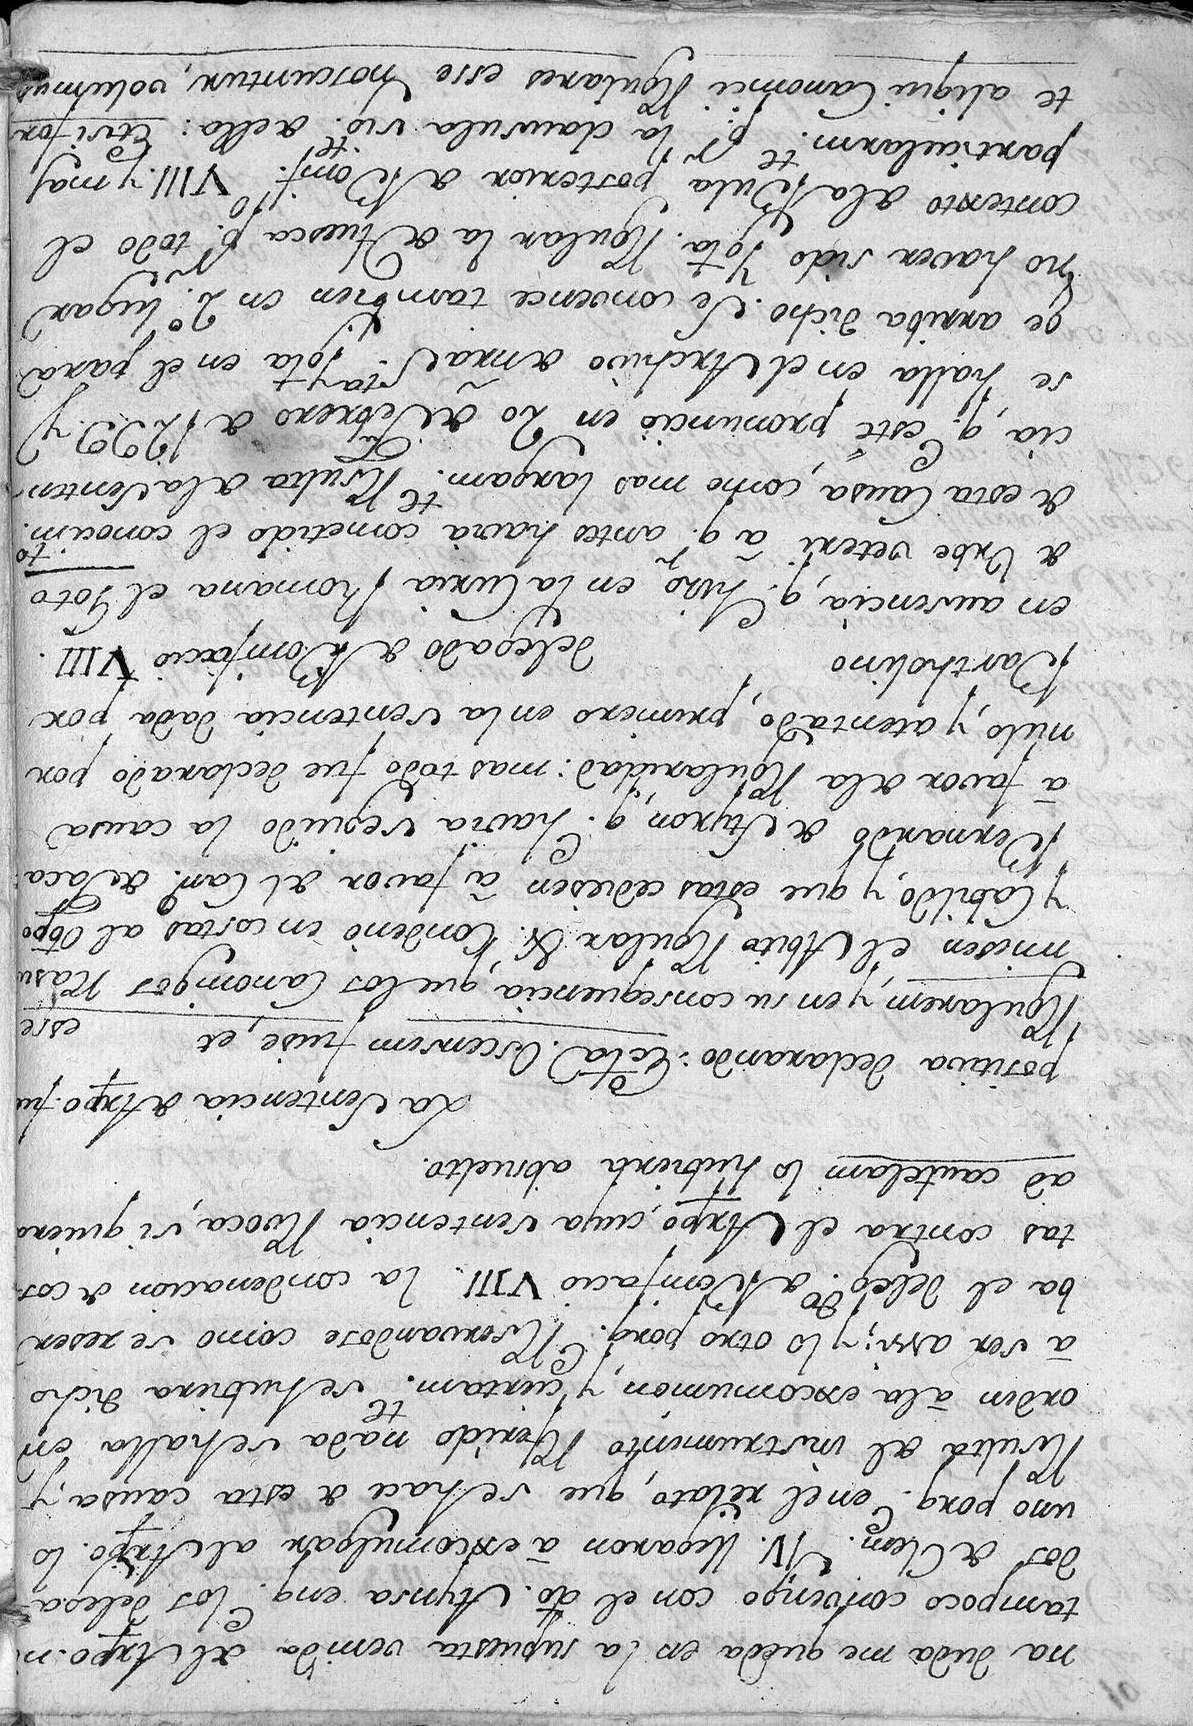 na duda me queda en la supuesta venida del Arzpo. ni
tampoco convengo con el do. Aynsa enq.e los delega-
dos de Clem.e IV. llegaron à excomulgar al Arzpo. lo
uno porq.e en el relato, que se hace de esta causa, y
Rsulta del instrumento Rferido nada se halla en
orden à la excomunion, y ciertam.te se hubiera dicho
à ser assi; y lo otro porq.e Rservandose como se reser
ba el deleg.do de Bonifacio VIII. la condenacion de cos-
tas contra el Arzpo, cuya sentencia Rvoca, si quiera
ad cautelam lo hubiera absuelto.
La Sentencia del Arzpo. fu
positiva declarando: Ectã Oscensem fuise, et esse
Rgularem, y en su consequencia, que los Canonigos Rasu
miesen el Abito Rgular &. Condenò en costas al Obpo
y Cabildo, y que estas cediesen à favor del Can.o de Jaca
Bernardo de Ayxon, q.e havia seguido la causa
à favor de la Rgularidad: mas todo fue declarado por
nulo, y atentado, primero en la sentencia dada por
Bartholino delegado de Bonifacio VIII.
en ausencia, q.e hizo en la Curia Romana el Soto
de Urbe veteri à q.n antes havia cometido el conocim.to
de esta Causa, como mas largam.te Rsulta de la Senten-
cia, q.e este pronunciò en 20 de Febrero de 1299. y
se halla en el Archivo de nra Sta Ygta en el para
ge arriba dicho. Se convence tambien en 2.o lugar
no haver sido Ygta. Rgular la de Huesca p.r todo el
contexto de la Bula posterior de Bonif.o VIII. y mas
particularm.te p.r la clausula sig.te della: Etsi for
te aliqui Canonici Rgulares esse noscuntur, volumus